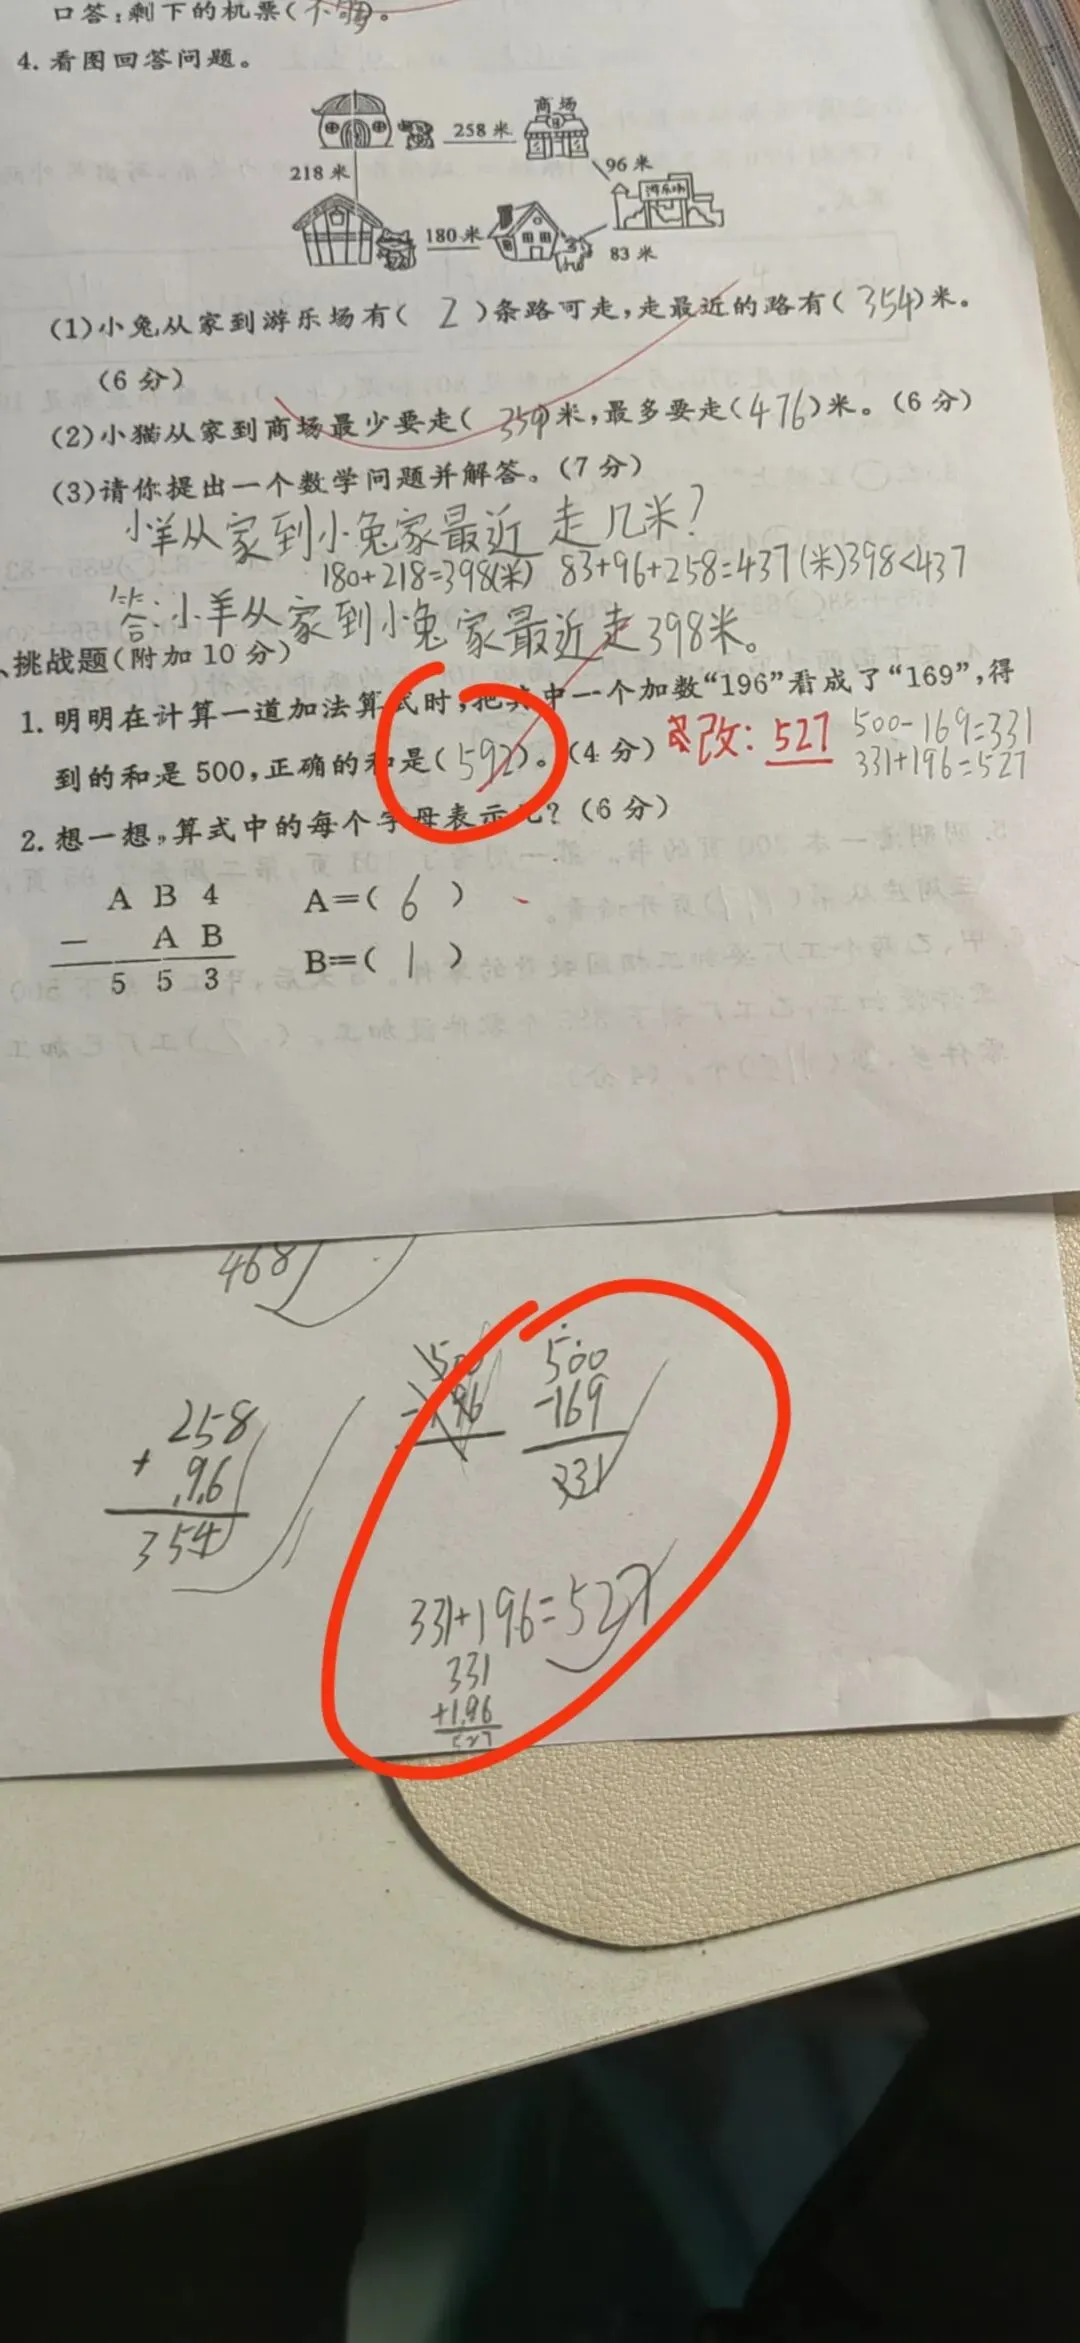 口答:剩下的机票(不够)。
4. 看图回答问题。
商场
258 米
218 米
96 米
游乐场
180 米
83 米
(1)小兔从家到游乐场有( 2 )条路可走,走最近的路有(354)米。
(6 分)
(2)小猫从家到商场最少要走( 359)米,最多要走(476)米。(6 分)
(3)请你提出一个数学问题并解答。(7 分)
小羊从家到小兔家最近走几米?
180+218=398(米) 83+96+258=437(米)398<437
答:小羊从家到小兔家最近走398米。
、挑战题(附加 10 分)
1. 明明在计算一道加法算式时,把其中一个加数“196”看成了“169”,得
到的和是 500,正确的和是(592)。(4 分) 改: 527 500-169=331
331+196=527
2. 想一想,算式中的每个字母表示几?(6 分)
A B 4 A=( 6 )
- A B B=( 1 )
5 5 3
468
500 500
-196 -169
331
258
+ 96
354
331+196=527
331
+196
527